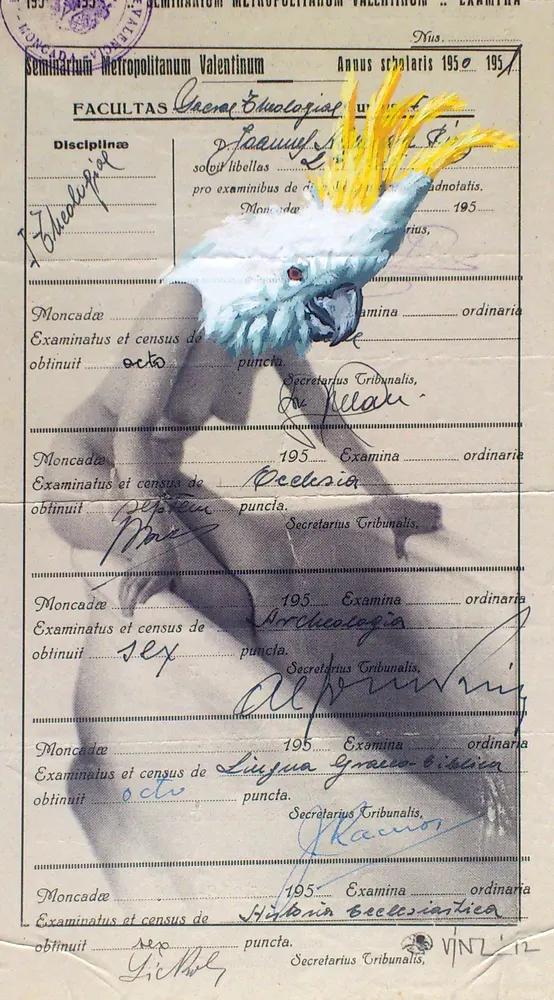 SEMINARIUM METROPOLITANUM VALENTINUM :: EXAMINA
MONCADA
Nus.
Seminarium Metropolitanum Valentinum
Annus scholaris 1950 1951
FACULTAS Sacrae Theologiae
Disciplinæ
I Theologiae
D. Joannes
solvit libellas
pro examinibus de
adnotatis.
Moncadæ
195
rius,
Moncadæ
amina ordinaria
Examinatus et census de
obtinuit octo puncta.
Secretarius Tribunalis,
Moncadæ 195 Examina ordinaria
Examinatus et census de Ecclesia
obtinuit septem puncta.
Secretarius Tribunalis,
Moncadæ 195 Examina ordinaria
Examinatus et census de Archeologia
obtinuit sex puncta.
Secretarius Tribunalis,
Moncadæ 195 Examina ordinaria
Examinatus et census de Lingua Graeco-Biblica
obtinuit octo puncta.
Secretarius Tribunalis,
J. Ramos
Moncadæ 195 Examina ordinaria
Examinatus et census de Historia Ecclesiastica
obtinuit sex puncta.
Secretarius Tribunalis,
VINZ '12